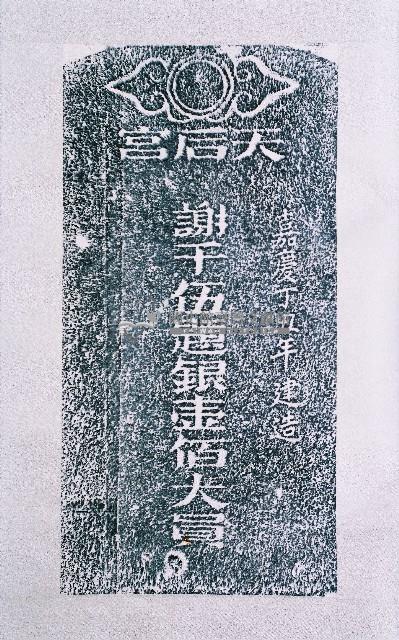 天后宮
嘉慶丁丑年建造
謝千伍題銀壹佰大員